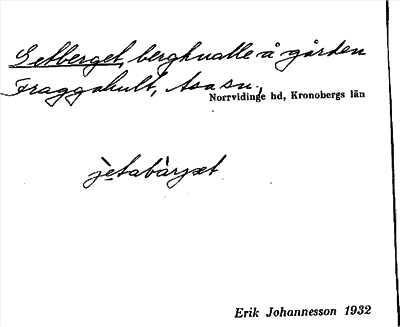 Getberget, bergknalle å gården
Fraggahult, Asa sn.,
Norrvidinge hd, Kronobergs län
jètabàrjət
Erik Johannesson 1932